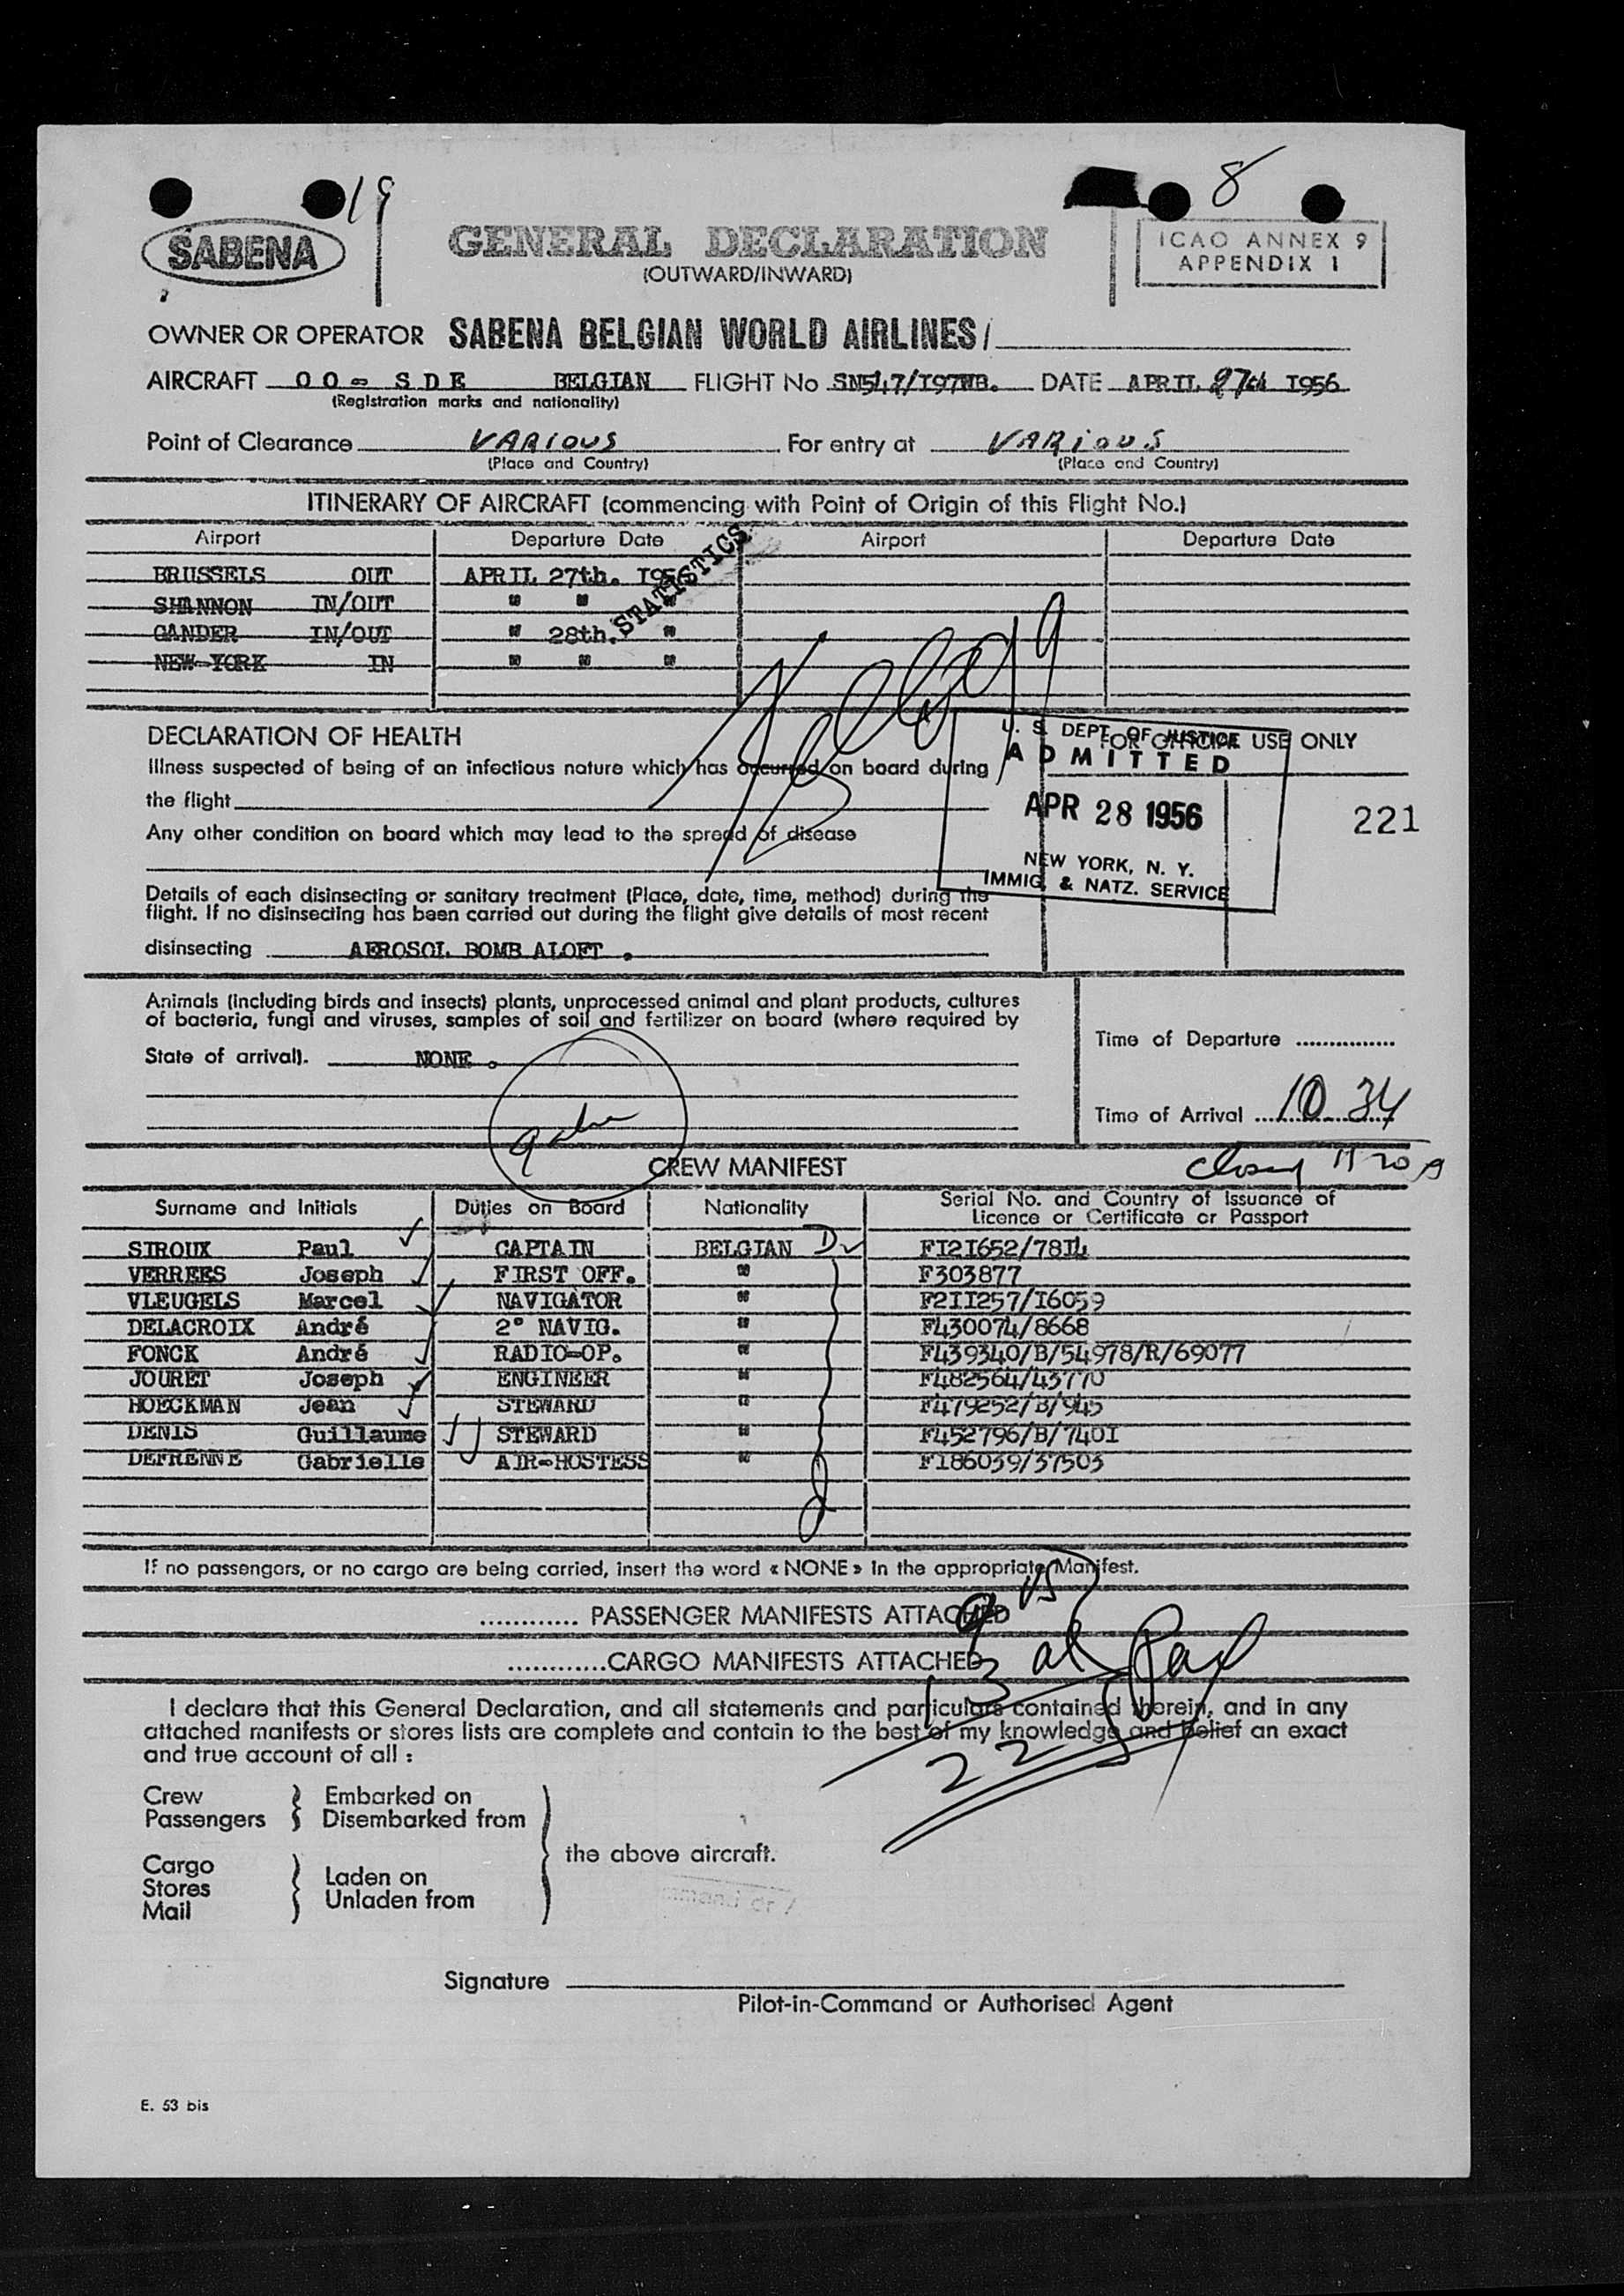 19
8
SABENA
GENERAL DECLARATION
(OUTWARD/INWARD)
ICAO ANNEX 9
APPENDIX 1
OWNER OR OPERATOR SABENA BELGIAN WORLD AIRLINES/
AIRCRAFT OO- SDE BELGIAN FLIGHT No SN547/197WB. DATE APRIL 27th I956
(Registration marks and nationality)
Point of Clearance VARIOUS For entry at VARIOUS
(Place and Country) (Place and Country)
ITINERARY OF AIRCRAFT (commencing with Point of Origin of this Flight No.)
Airport Departure Date Airport Departure Date
BRUSSELS OUT APRIL 27th. I956
STATISTICS
SHANNON IN/OUT " " "
GANDER IN/OUT " 28th. "
NEW-YORK IN " " "
DECLARATION OF HEALTH
FOR OFFICIAL USE ONLY
U. S. DEPT. OF JUSTICE
ADMITTED
APR 28 1956
NEW YORK, N. Y.
IMMIG. & NATZ. SERVICE
221
Illness suspected of being of an infectious nature which has occurred on board during
the flight
Any other condition on board which may lead to the spread of disease
Details of each disinsecting or sanitary treatment (Place, date, time, method) during the
flight. If no disinsecting has been carried out during the flight give details of most recent
disinsecting AEROSOL BOMB ALOFT .
Animals (including birds and insects) plants, unprocessed animal and plant products, cultures
of bacteria, fungi and viruses, samples of soil and fertilizer on board (where required by
State of arrival). NONE .
Time of Departure ...............
Time of Arrival 10 34
CREW MANIFEST
1120
Surname and Initials Duties on Board Nationality Serial No. and Country of Issuance of
Licence or Certificate or Passport
SIROUX Paul CAPTAIN BELGIAN D FI2I652/78I4
VERREES Joseph FIRST OFF. " F303877
VLEUGELS Marcel NAVIGATOR " F2II257/I6059
DELACROIX André 2° NAVIG. " F430074/8668
FONCK André RADIO-OP. " F439340/B/54978/R/69077
JOURET Joseph ENGINEER " F482564/43770
HOECKMAN Jean STEWARD " F479252/B/945
DENIS Guillaume STEWARD " F452796/B/740I
DEFRENNE Gabrielle AIR-HOSTESS " FI86039/37503
If no passengers, or no cargo are being carried, insert the word « NONE » in the appropriate Manifest.
............ PASSENGER MANIFESTS ATTACHED
9 US
............CARGO MANIFESTS ATTACHED
13 al
22
I declare that this General Declaration, and all statements and particulars contained therein, and in any
attached manifests or stores lists are complete and contain to the best of my knowledge and belief an exact
and true account of all :
Crew Embarked on
Passengers Disembarked from
the above aircraft.
Cargo
Stores Laden on
Mail Unladen from
Signature
Pilot-in-Command or Authorised Agent
E. 53 bis